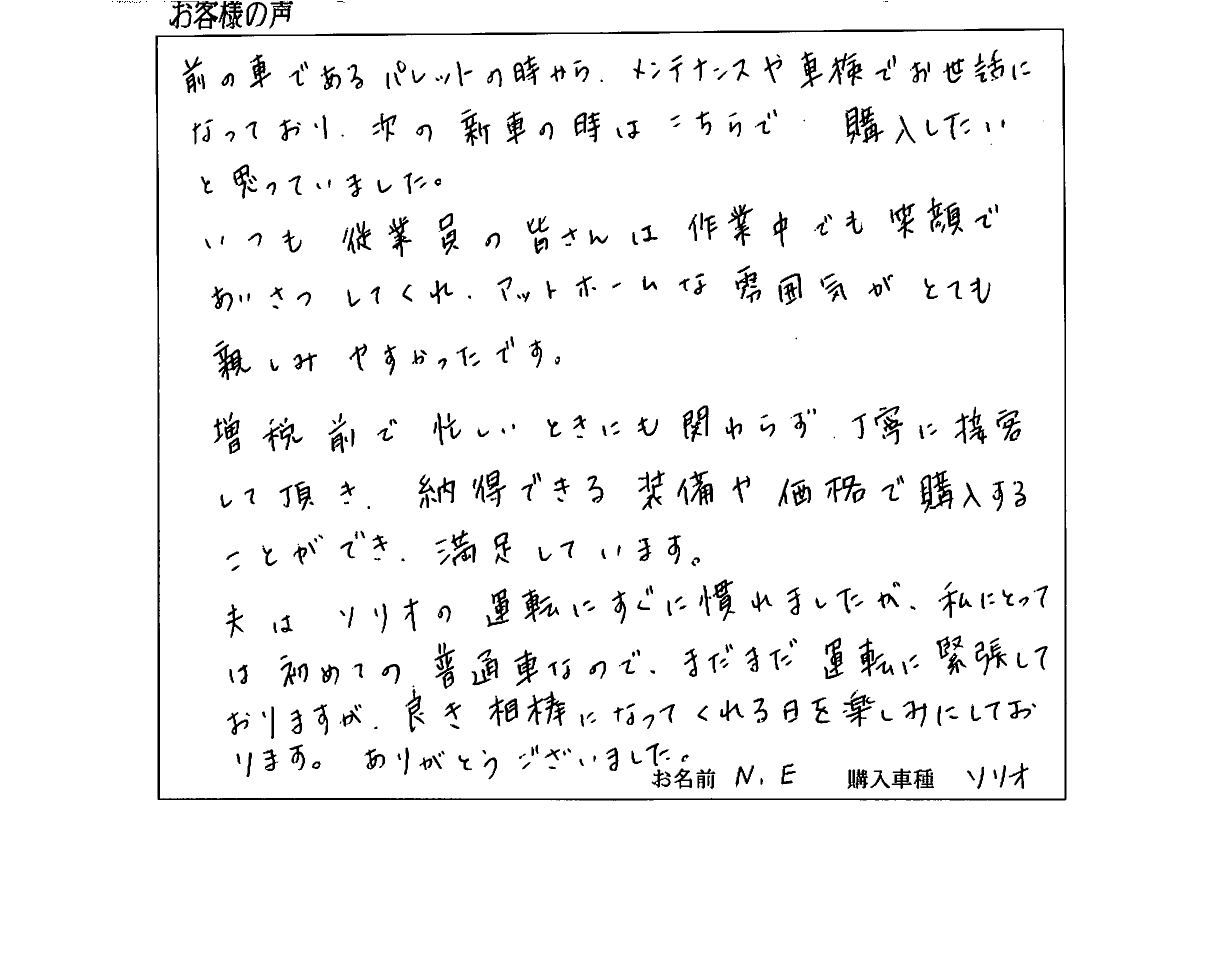 お客様の声
前の車であるパレットの時から、メンテナンスや車検でお世話に
なっており、次の新車の時はこちらで購入したい
と思っていました。
いつも従業員の皆さんは作業中でも笑顔で
あいさつしてくれ、アットホームな雰囲気がとても
親しみやすかったです。
増税前で忙しいときにも関わらず、丁寧に接客
して頂き、納得できる装備や価格で購入する
ことができ、満足しています。
夫はソリオの運転にすぐに慣れましたが、私にとって
は初めての普通車なので、まだまだ運転に緊張して
おりますが、良き相棒になってくれる日を楽しみにしてお
ります。ありがとうございました。
お名前 N.E 購入車種 ソリオ